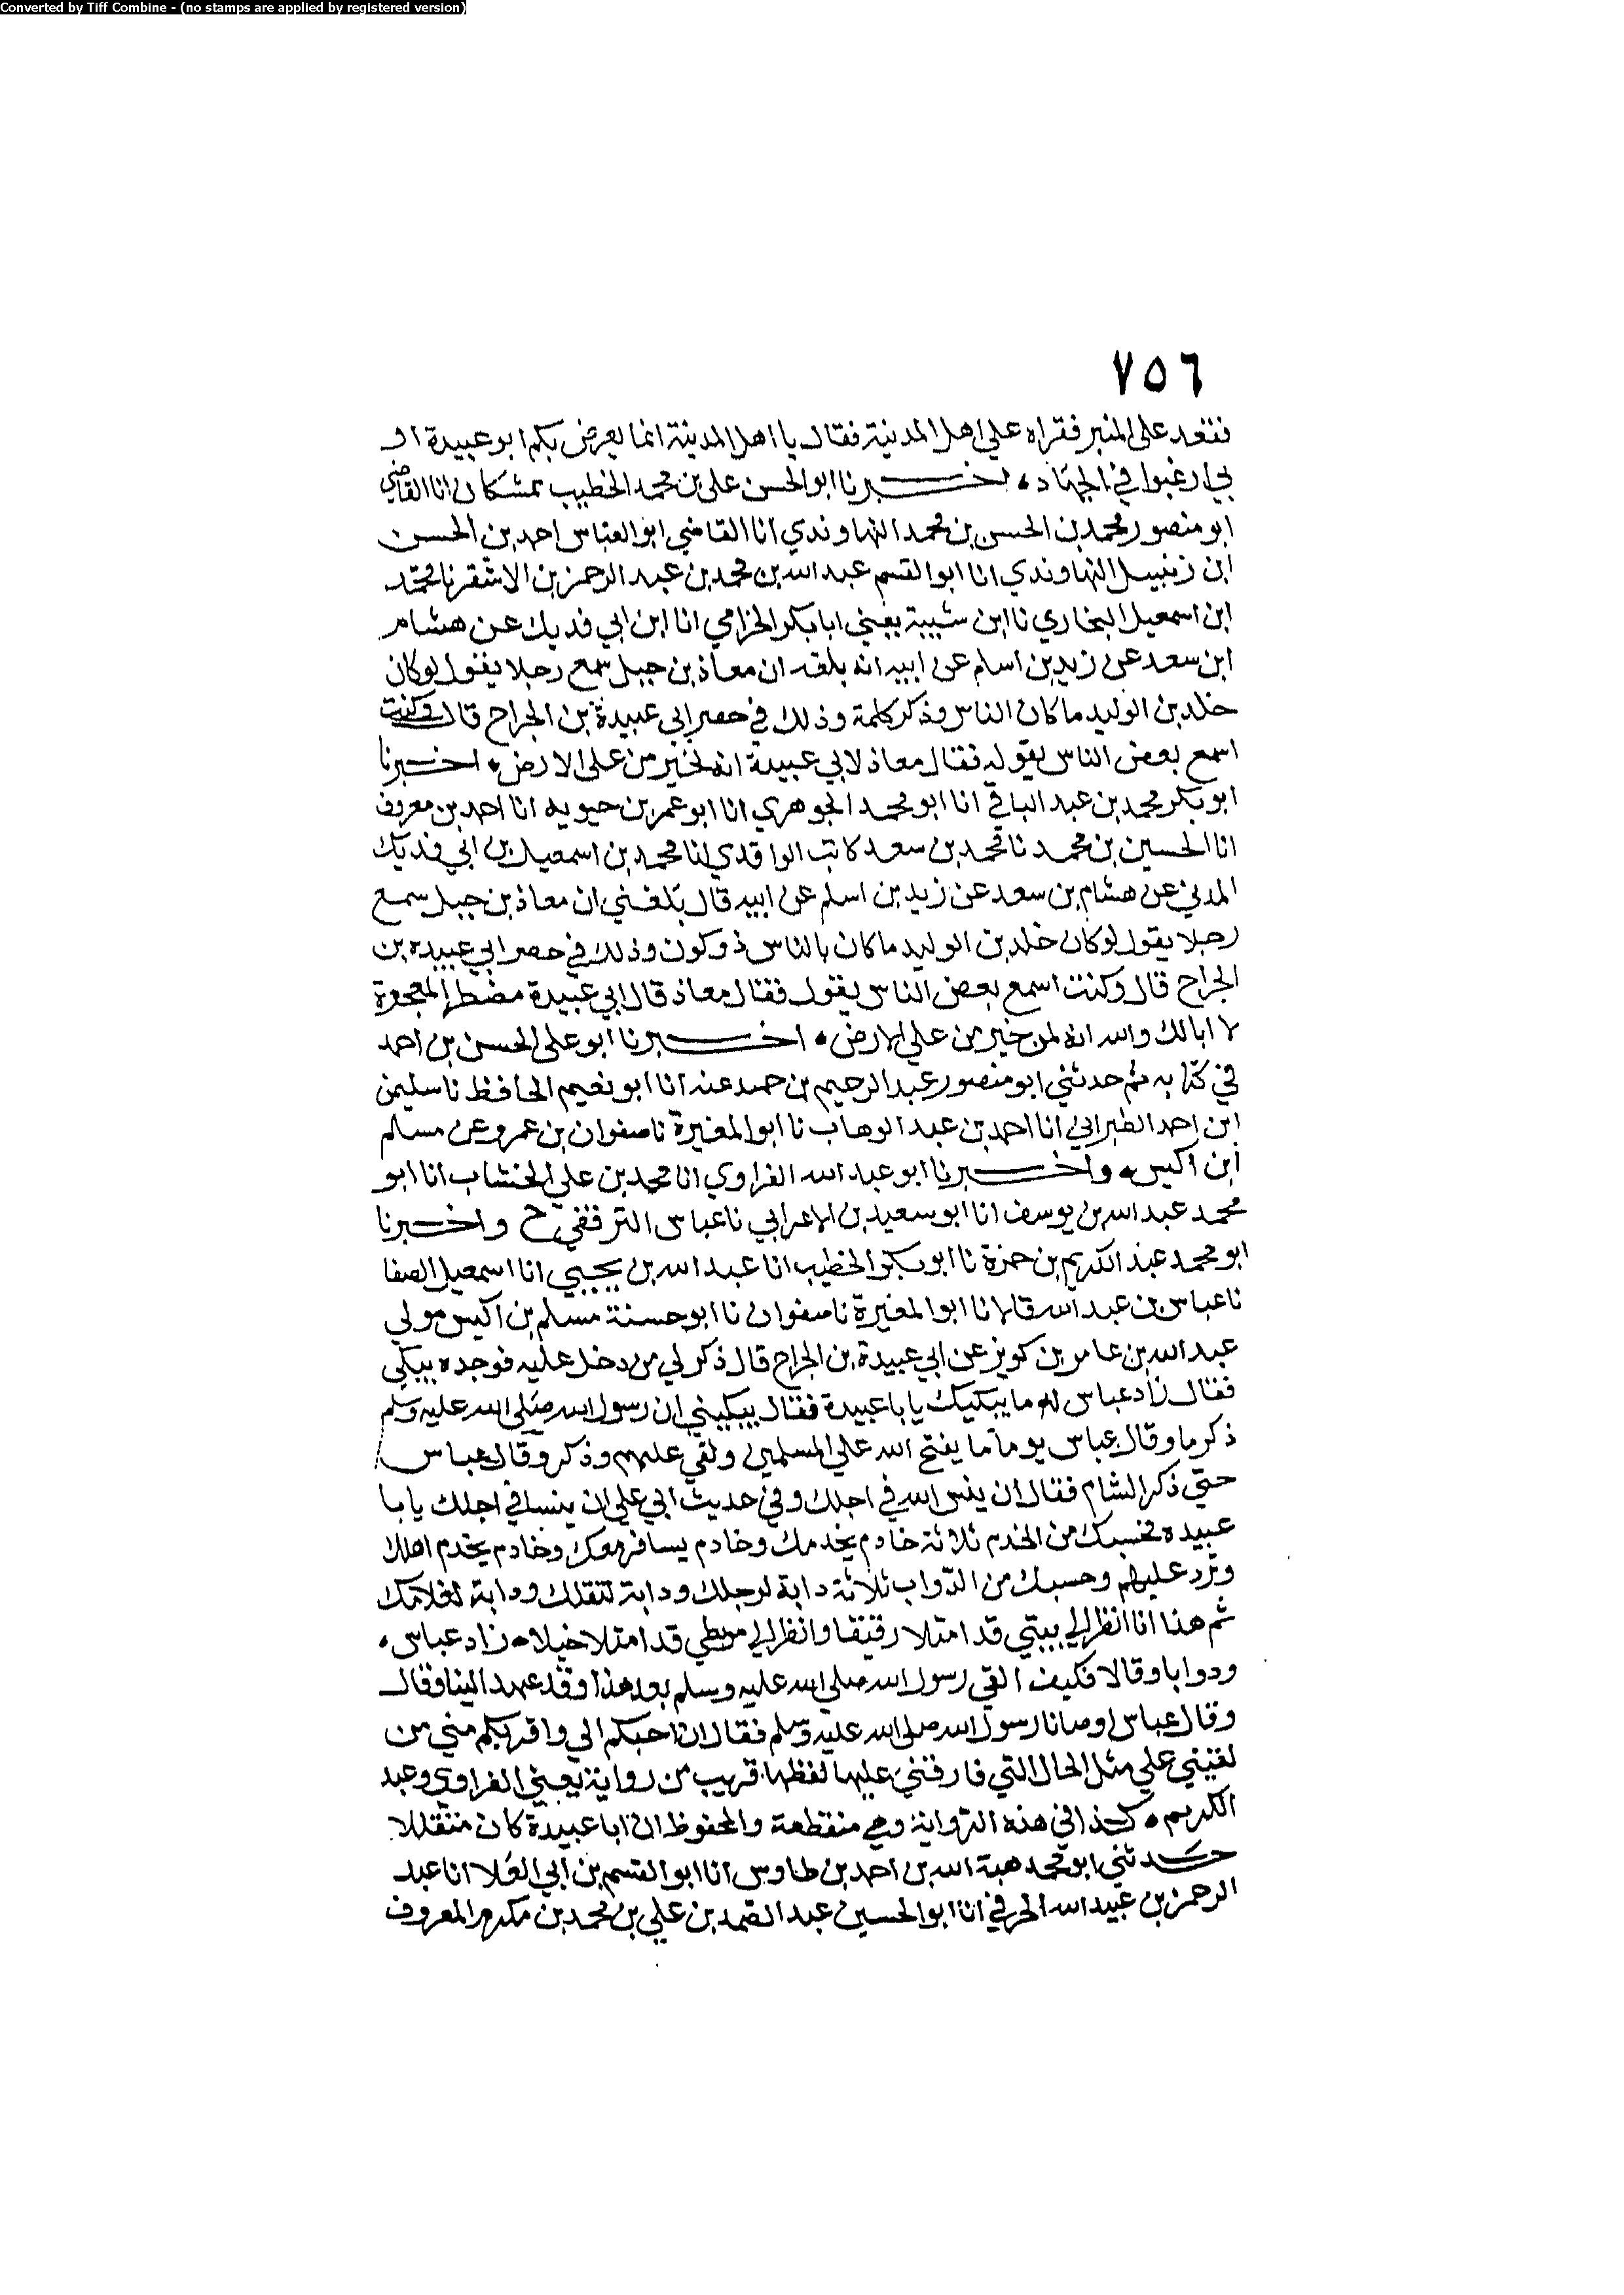 Converted by Tiff Combine - (no stamps are applied by registered version)
٧٥٦
فقعد على المنبر فقراه على اهل المدينة فقال يا اهل المدينة انما يعرض بكم ابو عبيدة او
بي ارغبوا في الجهاد ، اخبرنا ابو الحسن علي بن محمد الخطيب بمشكان انا القاضي
ابو منصور محمد بن الحسن بن محمد النهاوندي انا القاضي ابو العباس احمد بن الحسن
ابن زنبيل النهاوندي انا ابو القسم عبد الله بن محمد بن عبد الرحمن بن الاشقر نا محمد
ابن اسمعيل البخاري نا ابن شيبة يعني ابا بكر الحزامي انا ابن ابي فديك عن هشام
ابن سعد عن زيد بن اسلم عن ابيه انه بلغه ان معاذ بن جبل سمع رجلا يقول لو كان
خلد بن الوليد ما كان الناس وذكر كلمة وذلك في حصر ابي عبيدة بن الجراح قال وكنت
اسمع بعض الناس يقوله فقال معاذ لابي عبيدة انه لخير من على الارض ، اخبرنا
ابو بكر محمد بن عبد الباقي انا ابو محمد الجوهري انا ابو عمر بن حيويه انا احمد بن معروف
انا الحسين بن محمد نا محمد بن سعد كاتب الواقدي انا محمد بن اسمعيل بن ابي فديك
المدني عن هشام بن سعد عن زيد بن اسلم عن ابيه قال بلغني ان معاذ بن جبل سمع
رجلا يقول لو كان خلد بن الوليد ما كان بالناس ذوكون وذلك في حصر ابي عبيده بن
الجراح قال وكنت اسمع بعض الناس يقول فقال معاذ قال ابي عبيدة مضطر المعجزة
لا ابا لك والله انه لمن خير من على الارض ، اخبرنا ابو علي الحسن بن احمد
في كتابه ثم حدثني ابو منصور عبد الرحيم بن حمد عنه انا ابو نعيم الحافظ نا سليمن
ابن احمد الطبراني انا احمد بن عبد الوهاب نا ابو المغيرة نا صفوان بن عمرو عن مسلم
ابن اكيس ، واخبرنا ابو عبد الله الفراوي انا محمد بن علي الخشاب انا ابو
محمد عبد الله بن يوسف انا ابو سعيد بن الاعرابي نا عباس الترقفي ح واخبرنا
ابو محمد عبد الكريم بن حمزة نا ابو بكر الخطيب انا عبد الله بن يحيى انا اسمعيل الصفا
نا عباس بن عبد الله قالا نا ابو المغيرة نا صفوان نا ابو حسنة مسلم بن اكيس مولى
عبد الله بن عامر بن كويز عن ابي عبيدة بن الجراح قال ذكر لي من دخل عليه فوجده يبكي
فقال زاد عباس له ما يبكيك يا با عبيدة فقال يبكيني ان رسول الله صلى الله عليه وسلم
ذكر ما وقال عباس يوما ما يفتح الله على المسلمين ولقي عليهم وذكر وقال عباس
حتى ذكر الشام فقال ان ينس الله في اجلك وفي حديث ابي علي ان ينسا في اجلك يا با
عبيده فحسبك من الخدم ثلاثة خادم يخدمك وخادم يسافر معك وخادم يخدم اهلك
وترد عليهم وحسبك من الدواب ثلاثة دابة لرجلك ودابة لثقلك ودابة لغلامك
ثم هذا انا انظر الى بيتي قد امتلا رقيقا وانظر الى مربطي قد امتلا خيلا ، زاد عباس ،
ودوابا وقالا فكيف القى رسول الله صلى الله عليه وسلم بعد هذا وقد عهد الينا وقال
وقال عباس اوصانا رسول الله صلى الله عليه وسلم فقال ان احبكم الي واقربكم مني من
لقيني على مثل الحال التي فارقني عليها لفظها قريب من رواية يعني الفراوي وعبد
الكريم ، كذا في هذه الرواية وهي منقطعة والمحفوظ ان ابا عبيدة كان متقللا
حدثني ابو محمد هبة الله بن احمد بن طاوس انا ابو القسم بن ابي العلا انا عبد
الرحمن بن عبيد الله الحرفي انا ابو الحسين عبد الصمد بن علي بن محمد بن مكرم المعروف